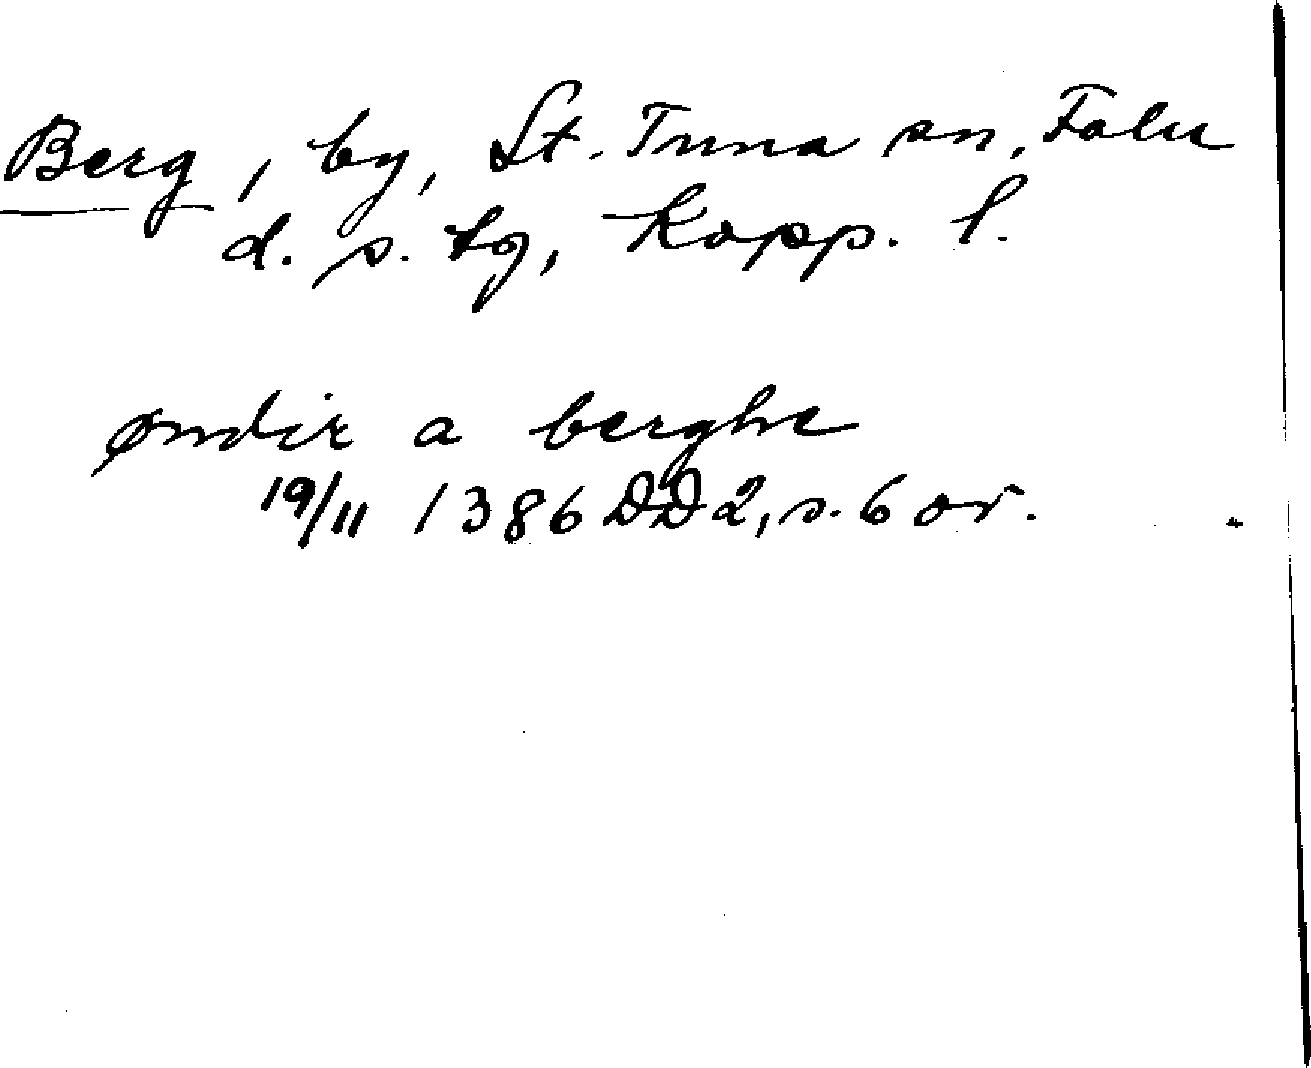 Berg, by, St. Tuna sn, Falu
d. s. tg, Kopp. l.
ømdir a berghe
19/11 1386 DD2, s. 6 or.